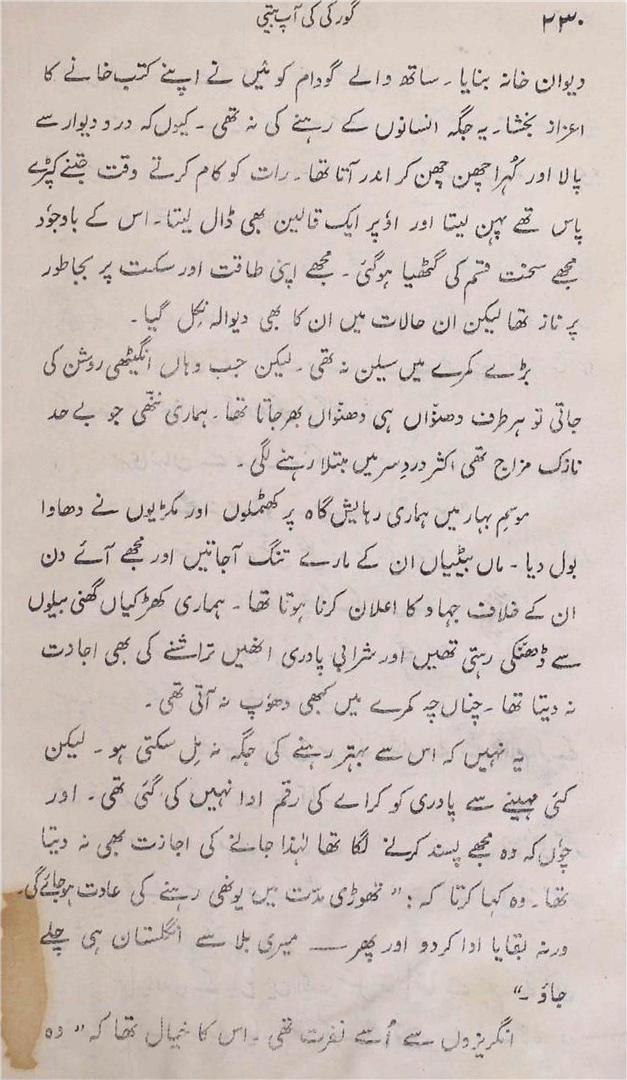 ۲۳۰
گورکی کی آپ بیتی
دیوان خانہ بنایا۔ ساتھ والے گودام کو مَیں نے اپنے کتب خانے کا
اعزاز بخشا۔ یہ جگہ انسانوں کے رہنے کی نہ تھی۔ کیوں کہ در و دیوار سے
پالا اور کُہرا چھن چھن کر اندر آتا تھا۔ رات کو کام کرتے وقت جتنے کپڑے
پاس تھے پہن لیتا اور اوٗپر ایک قالین بھی ڈال لیتا۔ اس کے باوجوٗد
مجھے سخت قسم کی گٹھیا ہوگئی۔ مجھے اپنی طاقت اور سکت پر بجا طور
پر ناز تھا لیکن ان حالات میں ان کا بھی دیوالہ نکل گیا۔
بڑے کمرے میں سیلن نہ تھی۔ لیکن جب وہاں انگیٹھی روشن کی
جاتی تو ہر طرف دھنواں ہی دھنواں بھرجاتا تھا۔ ہماری ننھّی جو بے حد
نازک مزاج تھی اکثر دردِ سر میں مبتلا رہنے لگی۔
موسمِ بہار میں ہماری رہایش گاہ پر کھٹملوں اور مکڑیوں نے دھاوا
بول دیا۔ ماں بیٹیاں ان کے مارے تنگ آجاتیں اور مجھے آئے دن
ان کے خلاف جہاد کا اعلان کرنا ہوتا تھا۔ ہماری کھڑکیاں گھنی بیلوں
سے ڈھنکی رہتی تھیں اور شرابی پادری انھیں تراشنے کی بھی اجازت
نہ دیتا تھا۔ چناں چہ کمرے میں کبھی دھوٗپ نہ آتی تھی۔
یہ نہیں کہ اس سے بہتر رہنے کی جگہ نہ مِل سکتی ہو۔ لیکن
کئی مہینے سے پادری کو کراے کی رقم ادا نہیں کی گئی تھی۔ اور
چوٗں کہ وہ مجھے پسند کرنے لگا تھا لہٰذا جانے کی اجازت بھی نہ دیتا
تھا۔ وہ کہا کرتا کہ: "تھوڑی مدّت میں یونھی رہنے کی عادت ہوجائے گی۔
ورنہ بقایا ادا کردو اور پھر — میری بلا سے انگلستان ہی چلے
جاؤ۔"
انگریزوں سے اُسے نفرت تھی۔ اس کا خیال تھا کہ "وہ